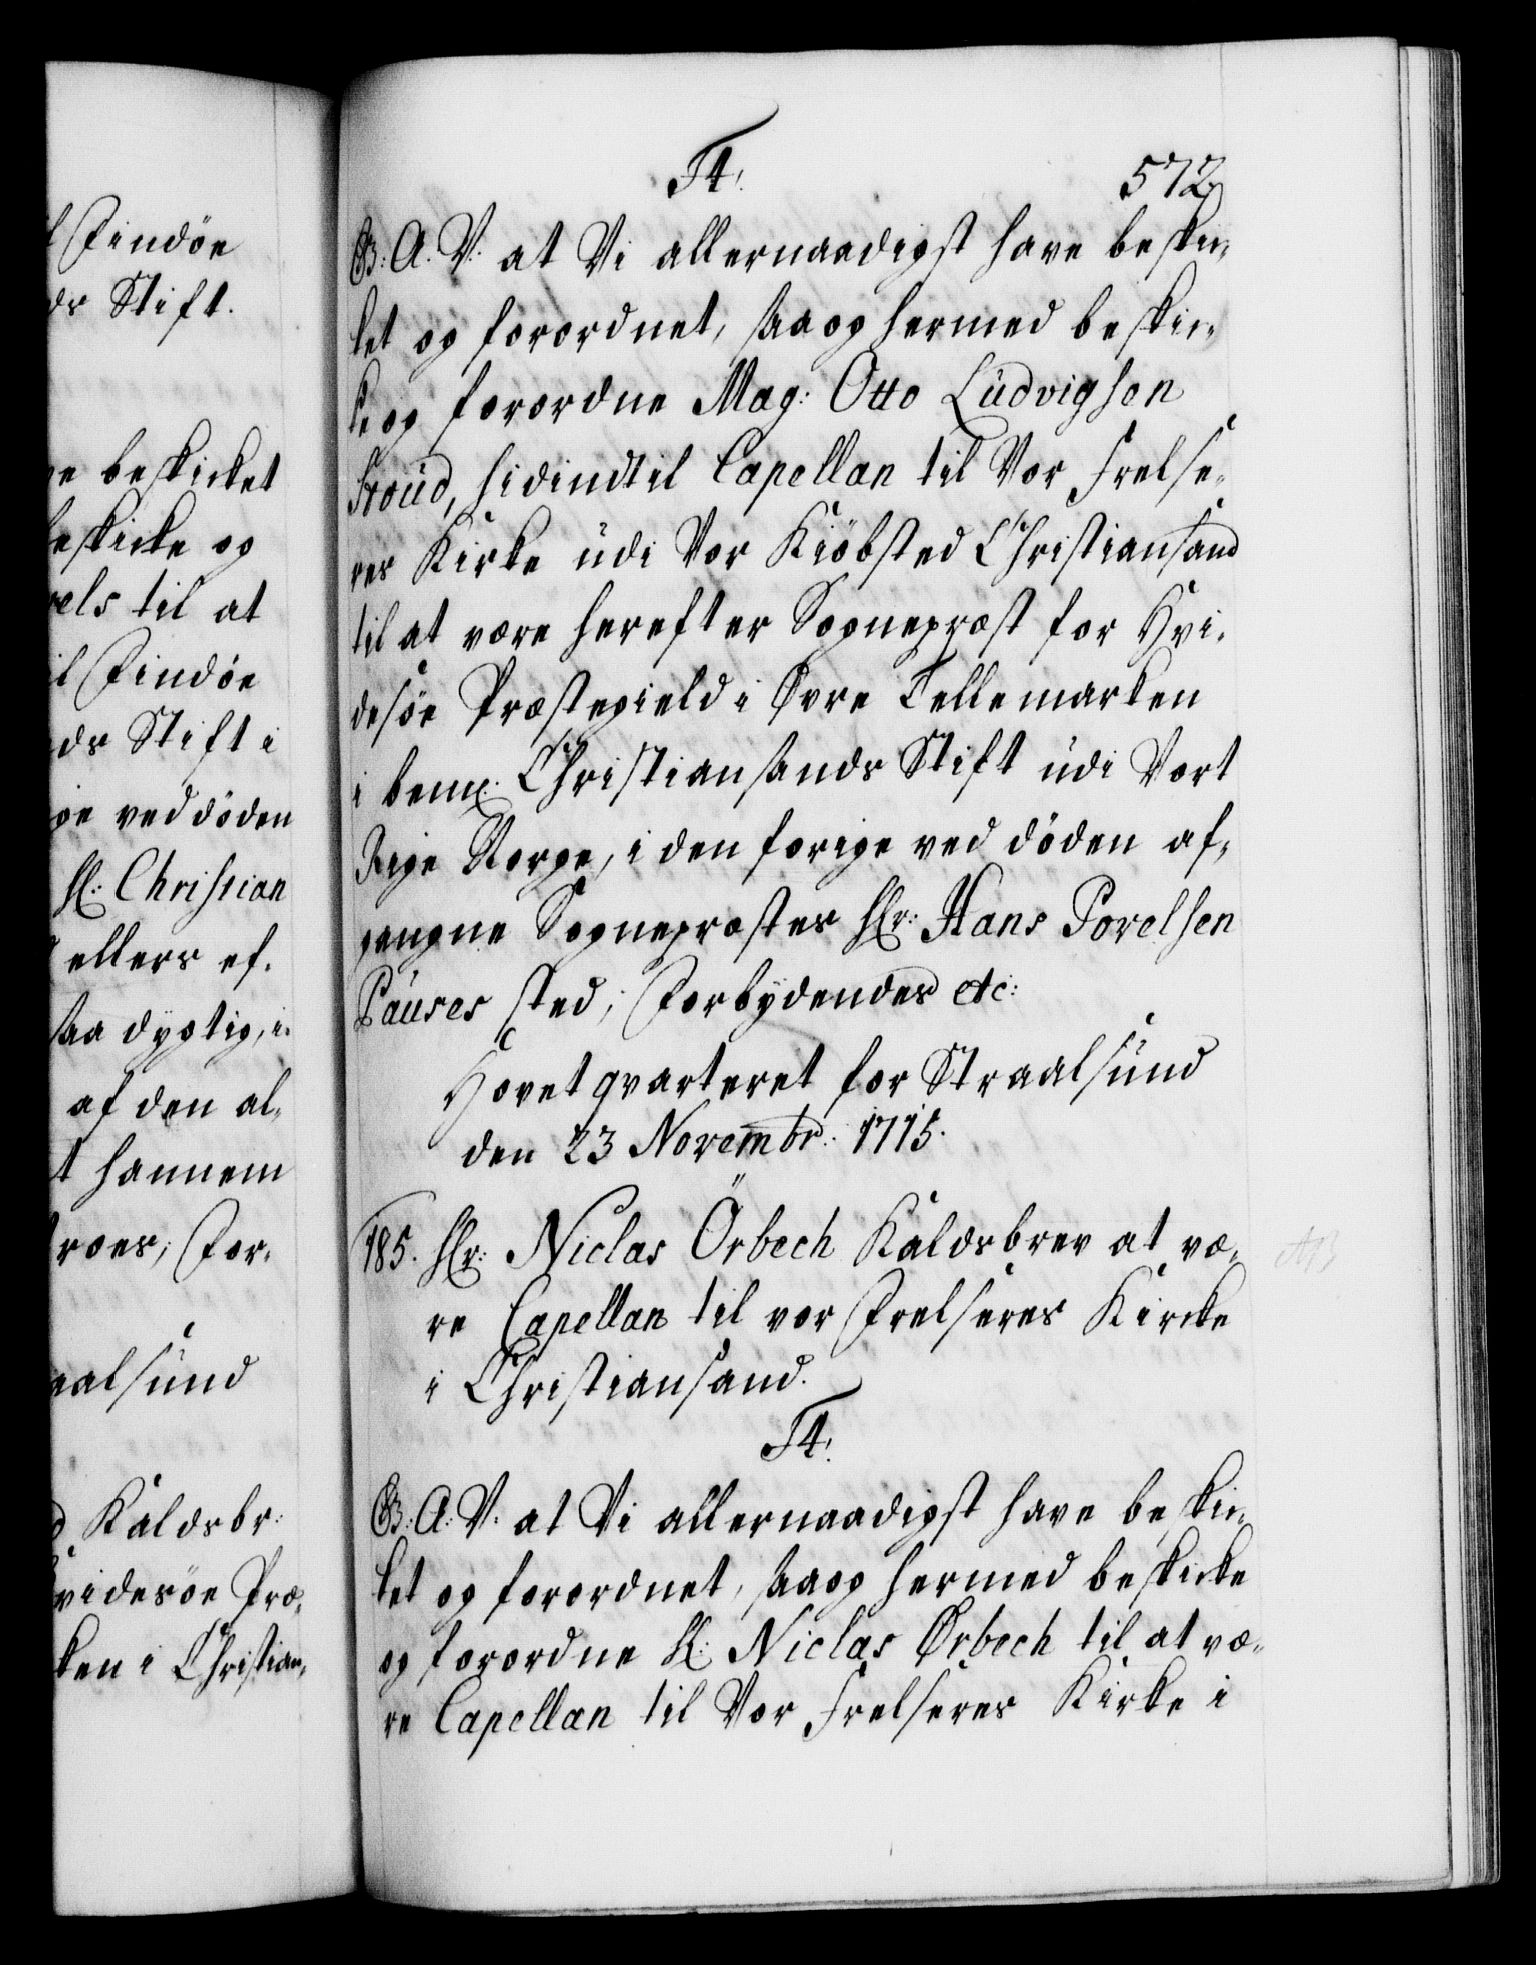 l Findöe
ds Stift.
ve beskicket
beskicke og
vels til at
il Findöe
ds Stift i
ge ved döden
Hl: Christian
ellers ef,
saa dygtig, i,
af den al,
t hannem
roes; For,
aalsund
d Kaldsbr:
hvidesöe Præ,
ken i Christian,
F4.
572
G: A. V: at Vi allernaadigst have beskic,
ket og forordnet, saa og hermed beskic,
ke og forordne Mag: Otto Ludvigsen
Stoud, hidindtil Capellan til Vor Frelse,
res Kirke udi Vor Kiöbsted Christiansand
til at være herefter Sognepræst for Hvi,
desöe Præstegield i Øvre Tellemarken
i bem: Christiansands Stift udi Vort
Rige Norge, i den forige ved döden af,
gangne Sognepræstes Hr: Hans Povelsen
Pauses sted; Forbydendes etc:
Hovetqvarteret for Straalsund
den 23 Novembr: 1715.
185. Hr: Niclas Örbech Kaldsbrev at væ,
re Capellan til vor Frelseres Kircke
i Christiansand.
F4.
G: A: V: at Vi allernaadigst have beskic,
ket og forordnet, saa og hermed beskicke
og forordne Hl: Niclas Ørbech til at væ,
re Capellan til Vor Frelseres Kirke i